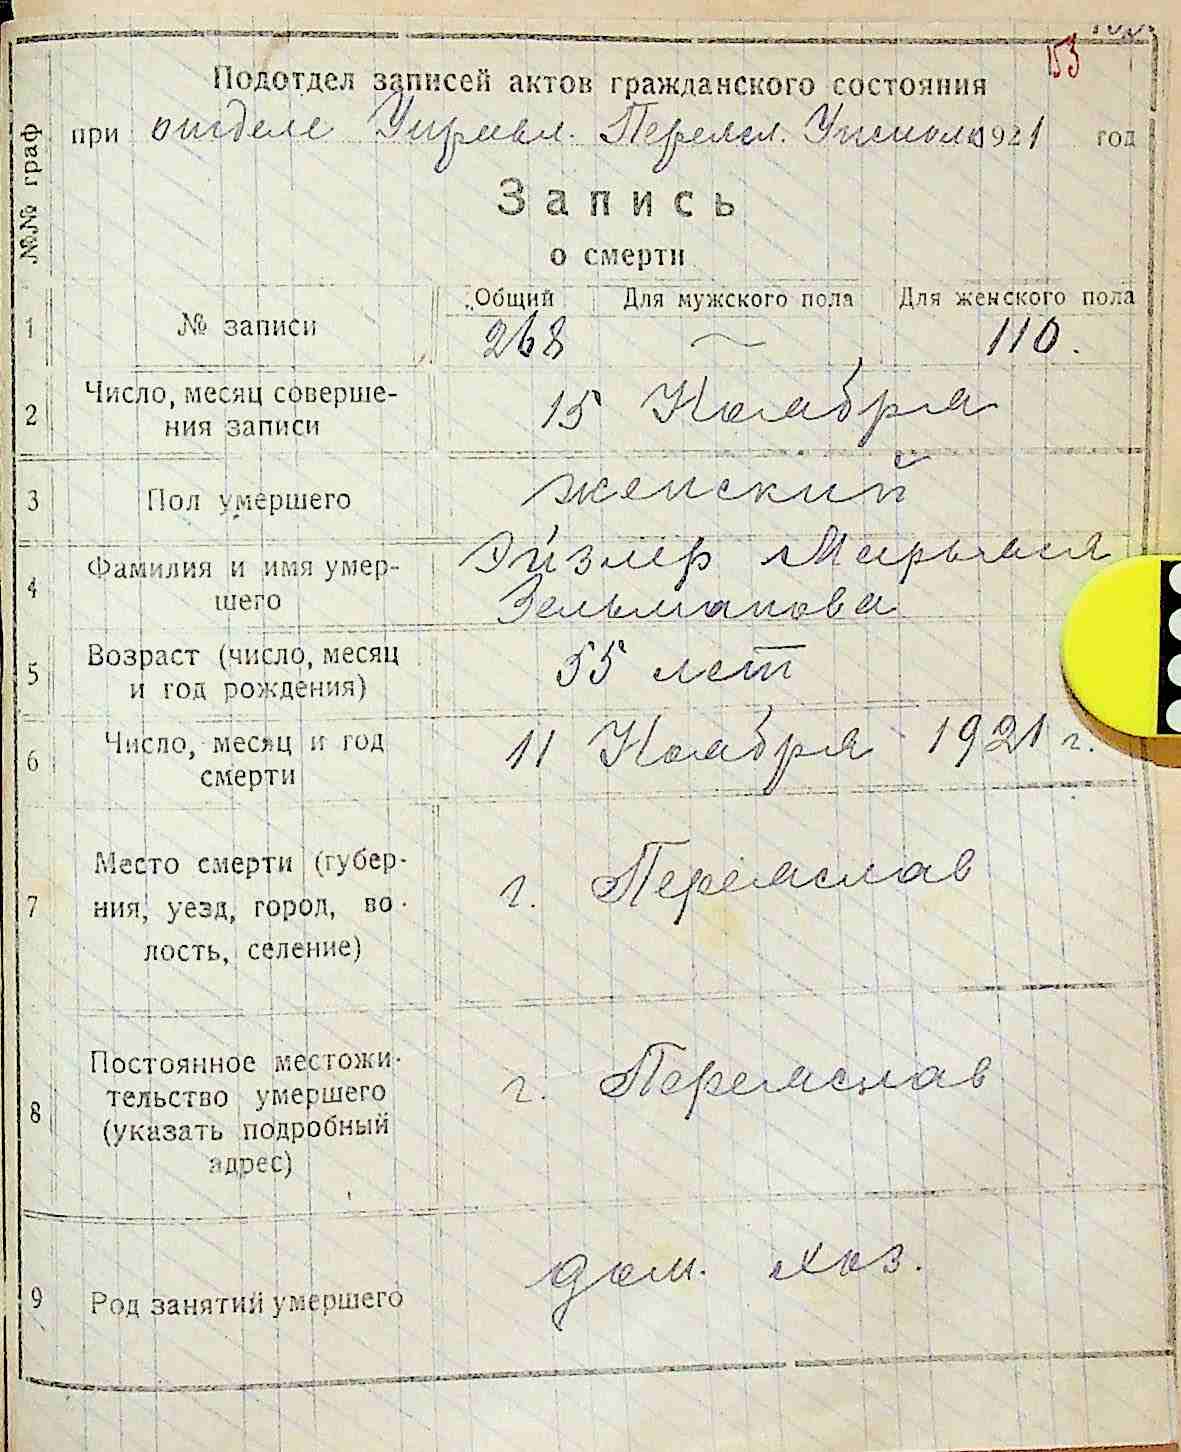 153
Подотдел записей актов гражданского состояния
при отделе Управл. Переясл. Уисполк 1921 год
№№ граф
Запись
о смерти
Общий Для мужского пола Для женского пола
1 № записи 268 — 110.
2 Число, месяц соверше-
ния записи 15 Ноября
3 Пол умершего женский
4 Фамилия и имя умер-
шего Эйзлер Марьяся
Зельманова
5 Возраст (число, месяц
и год рождения) 55 лет
6 Число, месяц и год
смерти 11 Ноября 1921 г.
7 Место смерти (губер-
ния, уезд, город, во-
лость, селение) г. Переяслав
8 Постоянное местожи-
тельство умершего
(указать подробный
адрес) г. Переяслав
9 Род занятий умершего дом. хоз.